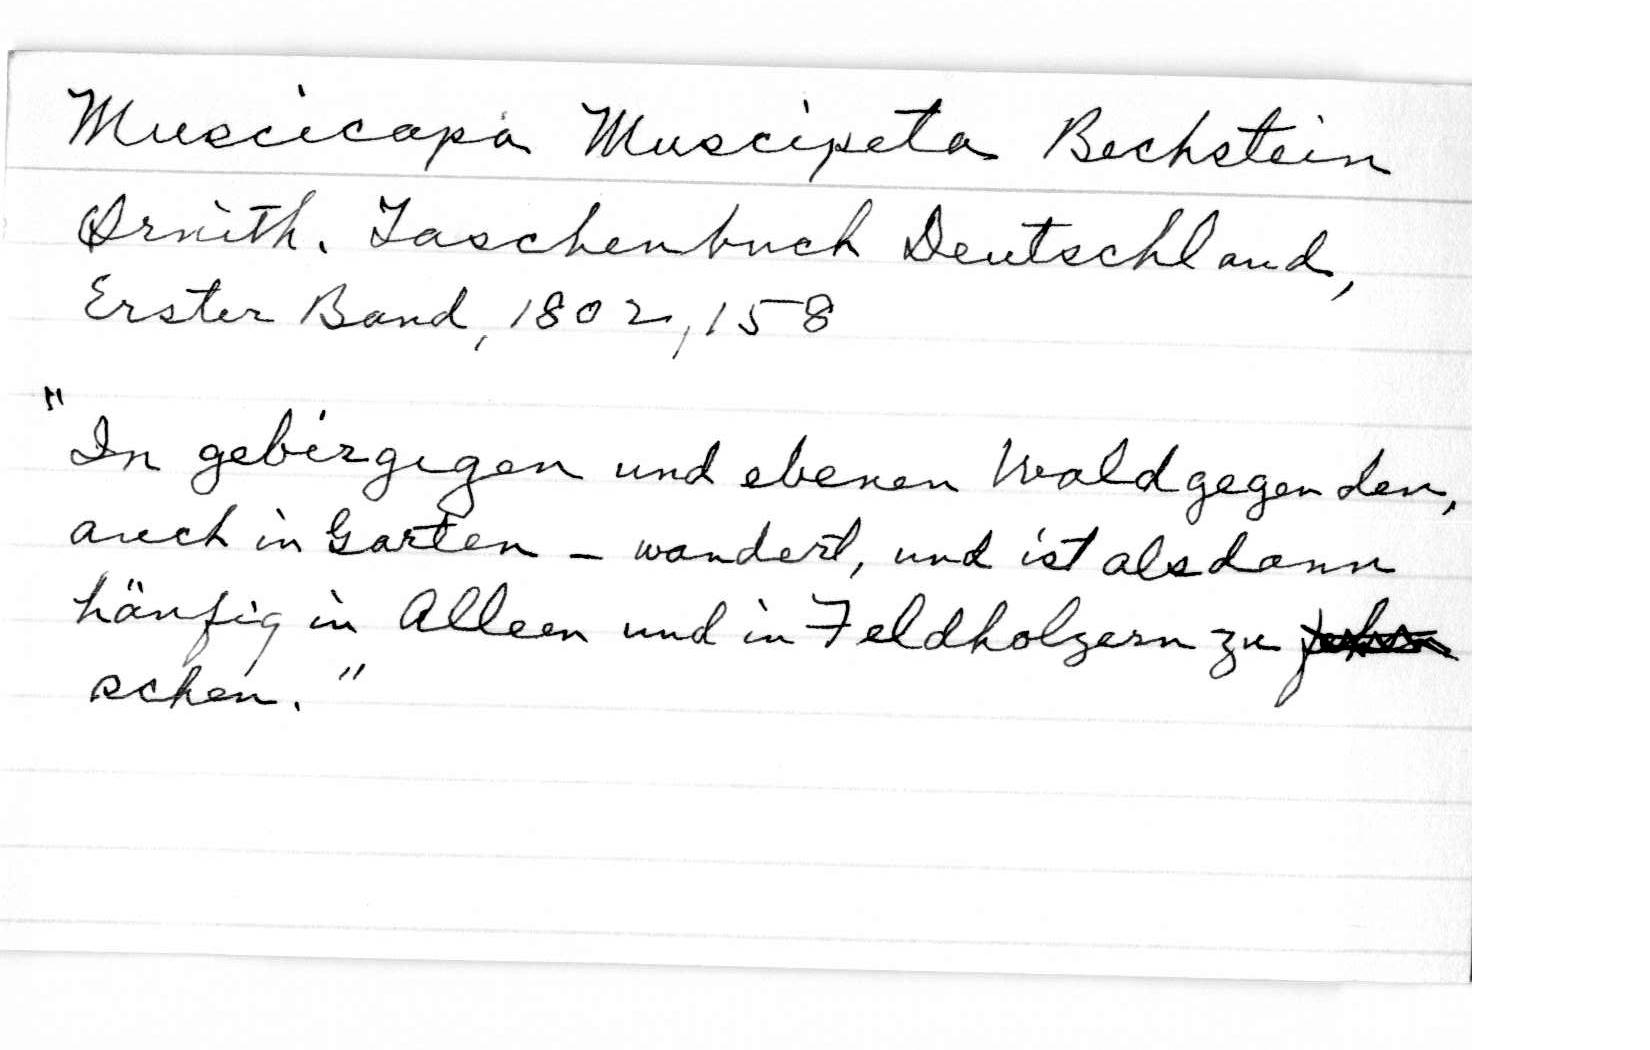 Muscicapa Muscipeta Bechstein
Ornith. Taschenbuch Deutschland,
Erster Band, 1802, 158
"In gebirgigen und ebenen Waldgegenden,
auch in Garten – wandert, und ist alsdann
häufig in Alleen und in Feldholzern zu
schen."